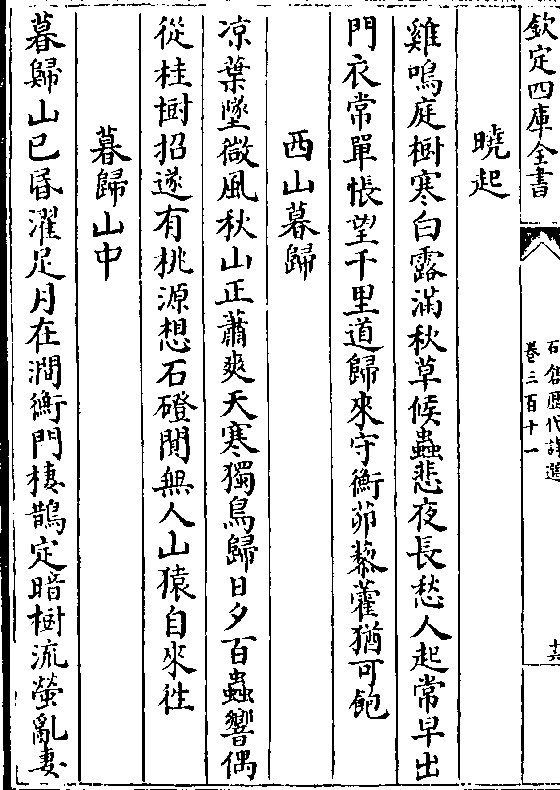 欽定四庫全書
石倉歷代詩選
卷三百十一
十六
曉起
雞鳴庭樹寒白露滿秋草候蟲悲夜長愁人起常早出
門衣常單悵望千里道歸來守衡茆藜藿猶可飽
西山暮歸
凉葉墜微風秋山正蕭爽天寒獨鳥歸日夕百蟲響偶
從桂樹招遂有桃源想石磴閴無人山猿自來徃
暮歸山中
暮歸山已昏濯足月在澗衡門棲鵲定暗樹流螢亂妻